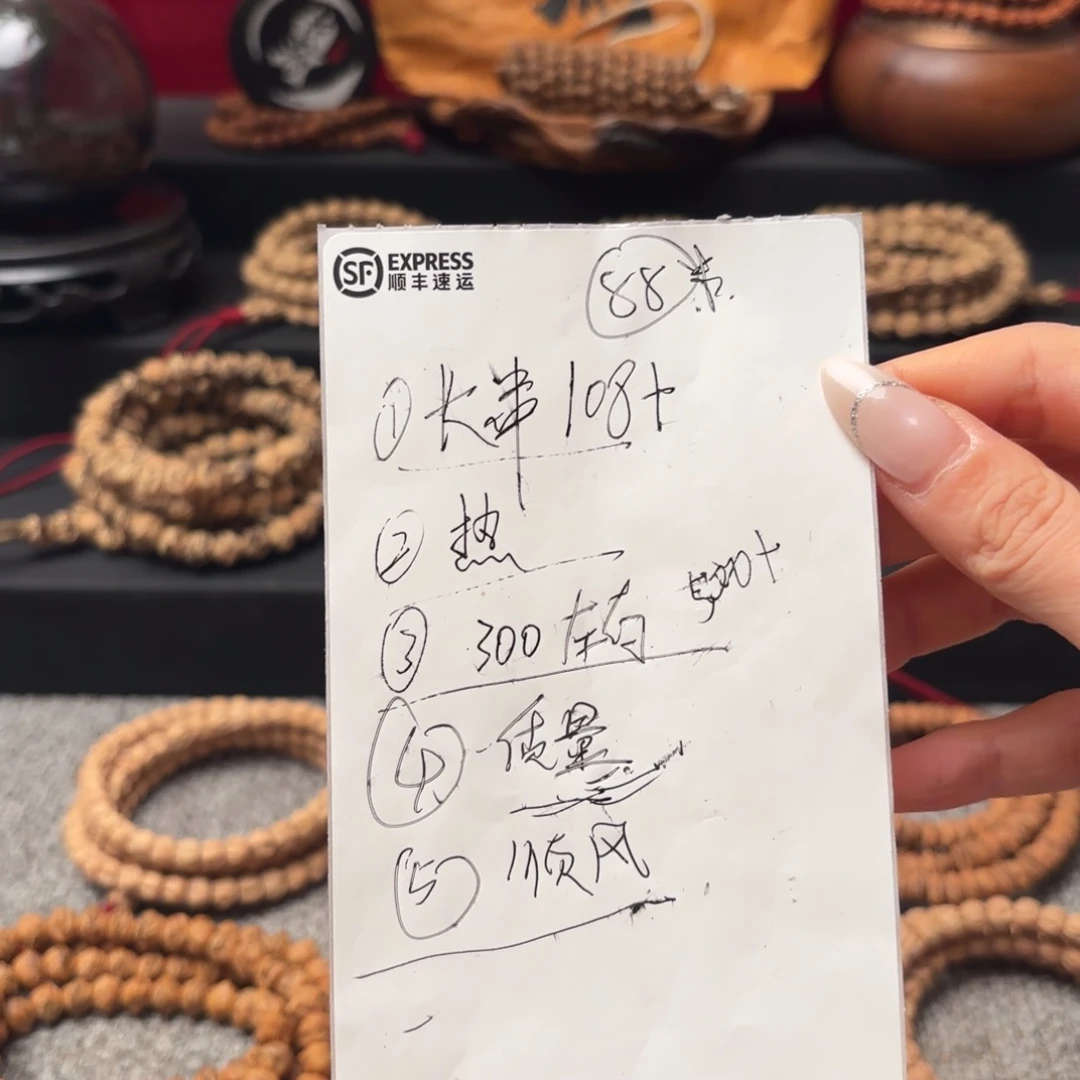 SF EXPRESS
顺丰速运
88
① 长串 108+
② 热
③ 300 左右
④ 质量
⑤ 顺风